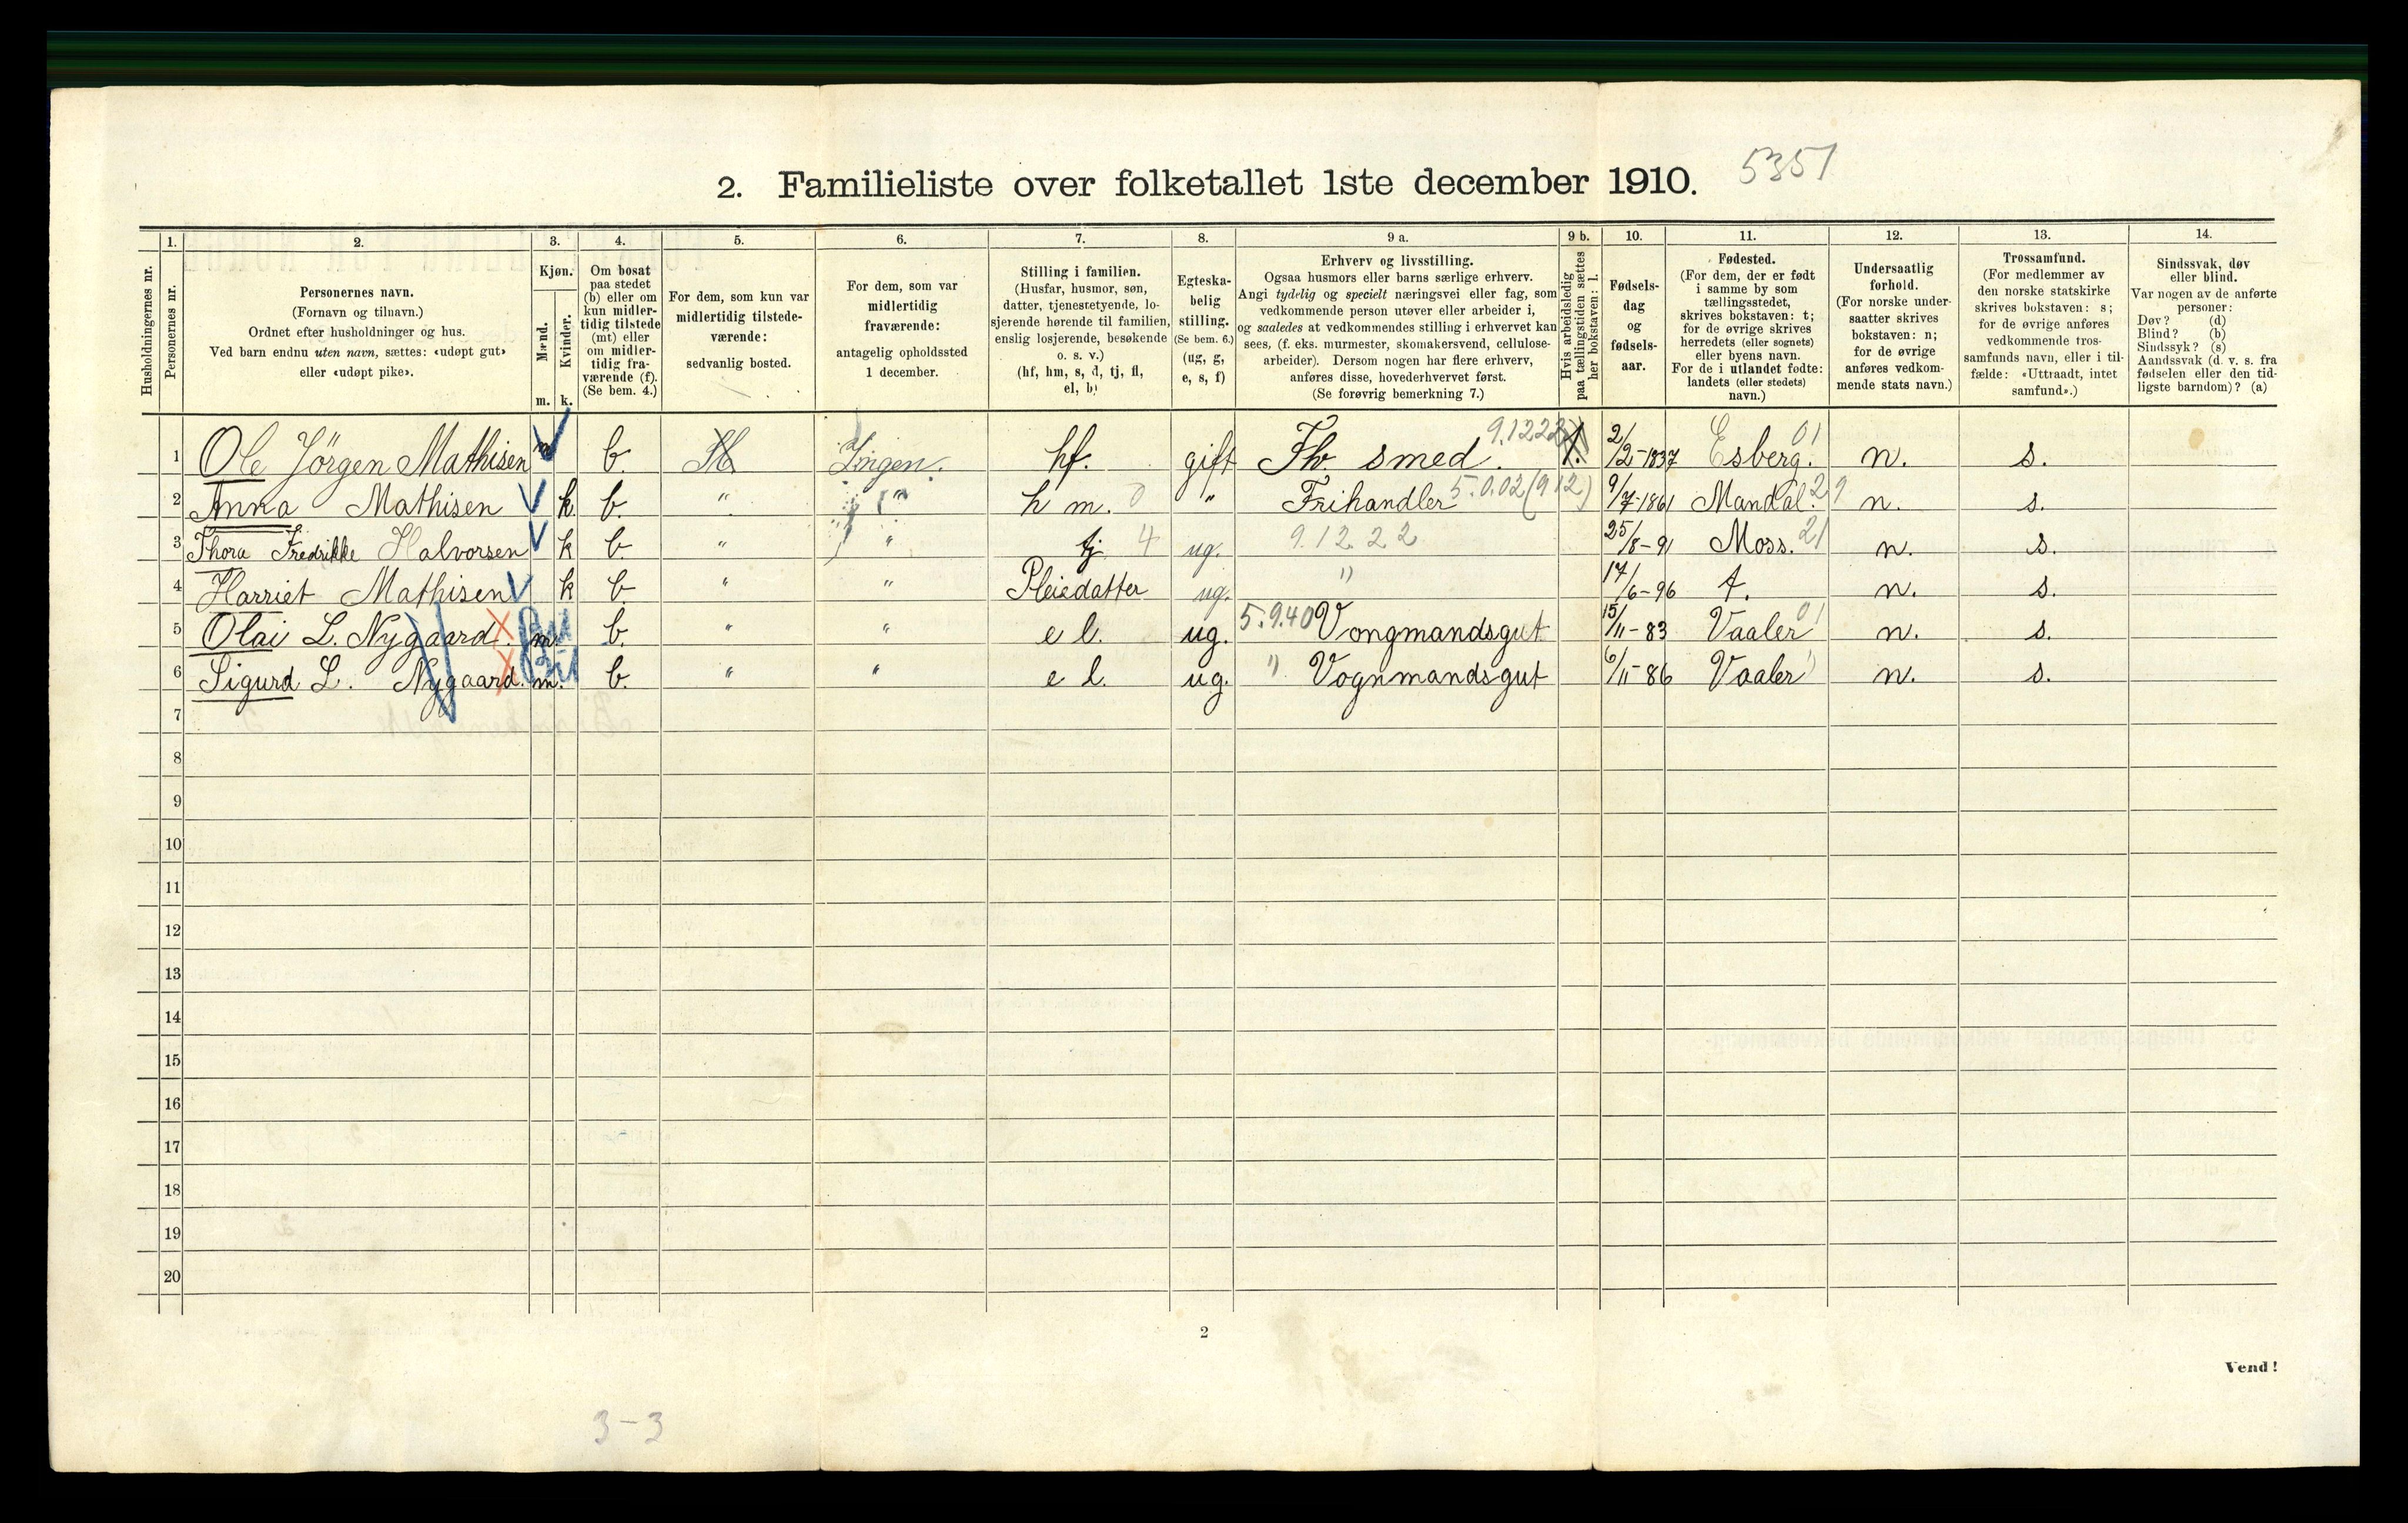 2. Familieliste over folketallet 1ste december 1910. 5351
1. 2. 3. 4. 5. 6. 7. 8. 9 a. 9 b. 10. 11. 12. 13. 14.
Husholdningernes nr.
Personernes nr.
Personernes navn.
(Fornavn og tilnavn.)
Ordnet efter husholdninger og hus.
Ved barn endnu uten navn, sættes: «udøpt gut»
eller «udøpt pike».
Kjøn.
Mænd.
Kvinder.
m. k.
Om bosat
paa stedet
(b) eller om
kun midler-
tidig tilstede
(mt) eller
om midler-
tidig fra-
værende (f).
(Se bem. 4.)
For dem, som kun var
midlertidig tilstede-
værende:
sedvanlig bosted.
For dem, som var
midlertidig
fraværende:
antagelig opholdssted
1 december.
Stilling i familien.
(Husfar, husmor, søn,
datter, tjenestetyende, lo-
sjerende hørende til familien,
enslig losjerende, besøkende
o. s. v.)
(hf, hm, s, d, tj, fl,
el, b)
Egteska-
belig
stilling.
(Se bem. 6.)
(ug, g,
e, s, f)
Erhverv og livsstilling.
Ogsaa husmors eller barns særlige erhverv.
Angi tydelig og specielt næringsvei eller fag, som
vedkommende person utøver eller arbeider i,
og saaledes at vedkommendes stilling i erhvervet kan
sees, (f. eks. murmester, skomakersvend, cellulose-
arbeider). Dersom nogen har flere erhverv,
anføres disse, hovederhvervet først.
(Se forøvrig bemerkning 7.)
Hvis arbeidsledig
paa tællingstiden sættes
her bokstaven: l.
Fødsels-
dag
og
fødsels-
aar.
Fødested.
(For dem, der er født
i samme by som
tællingsstedet,
skrives bokstaven: t;
for de øvrige skrives
herredets (eller sognets)
eller byens navn.
For de i utlandet fødte:
landets (eller stedets)
navn.)
Undersaatlig
forhold.
(For norske under-
saatter skrives
bokstaven: n;
for de øvrige
anføres vedkom-
mende stats navn.)
Trossamfund.
(For medlemmer av
den norske statskirke
skrives bokstaven: s;
for de øvrige anføres
vedkommende tros-
samfunds navn, eller i til-
fælde: «Uttraadt, intet
samfund».)
Sindssvak, døv
eller blind.
Var nogen av de anførte
personer:
Døv? (d)
Blind? (b)
Sindssyk? (s)
Aandssvak (d. v. s. fra
fødselen eller den tid-
ligste barndom)? (a)
1 Ole Jörgen Mathisen m b. Ingen. hf. gift Fb smed. 9.1222 2/2-1837 Esberg. 01 n. s.
2 Anna Mathisen k. b " " h m. 0 " Frihandler 5.0.02 (912) 9/7-1861 Mandal. 29 n. s.
3 Thora Fredrikke Halvorsen k b. " " tj 4 ug. 9.12.22 25/8-91 Moss. 21 n. s.
4 Harriet Mathisen k b " " Pleiedatter ug. " 17/6-96 t. n. s.
5 Olai L. Nygaard. m. b. " " e l. ug. 5.9.40 Vongmandsgut 15/11-83 Vaaler 01 n. s.
6 Sigurd L. Nygaard. m. b. " " e l. ug. " Vognmandsgut 6/11-86 Vaaler " n. s.
7
8
9
10
11
12
13
14
15
16
17
18
19
20
2
Vend!
3-3